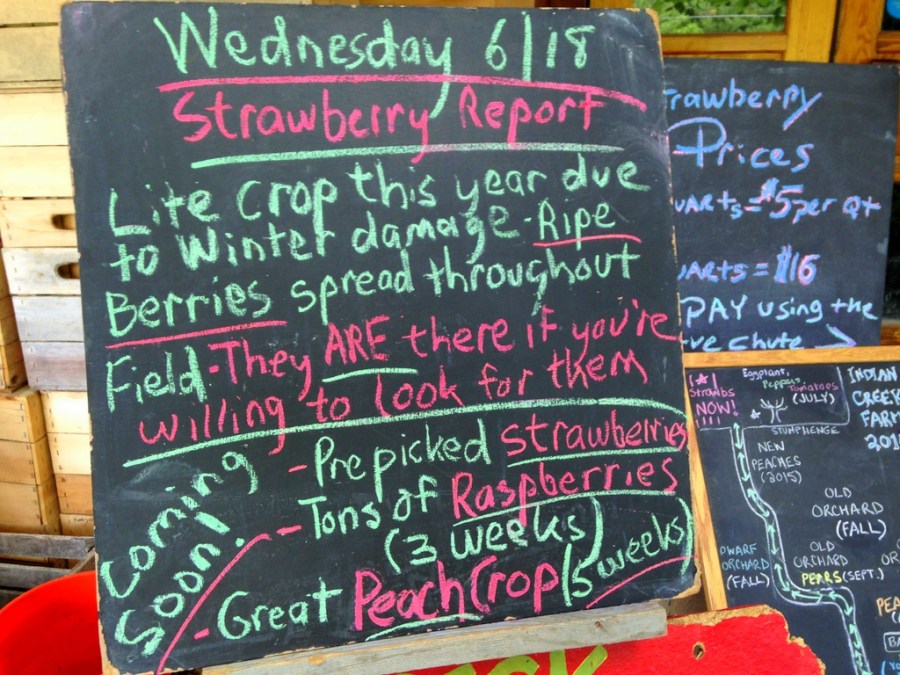 Wednesday 6/18
Strawberry Report
Lite crop this year due
to Winter damage - Ripe
Berries spread throughout
Field - They ARE there if you're
willing to look for them
Coming
Soon!
- Prepicked Strawberries
- Tons of Raspberries
(3 weeks)
- Great Peach Crop (5 weeks)
rawberry
Prices
uarts = $5 per Qt
uarts = $16
PAY using the
chute →
STRAWBS
NOW!
Eggplant,
Peppers
Tomatoes
(JULY)
STUMPHENGE
INDIAN
CREEK
FARM
NEW
PEACHES
(2015)
OLD
ORCHARD
(FALL)
DWARF
ORCHARD
(FALL)
OLD
ORCHARD
PEARS (SEPT.)